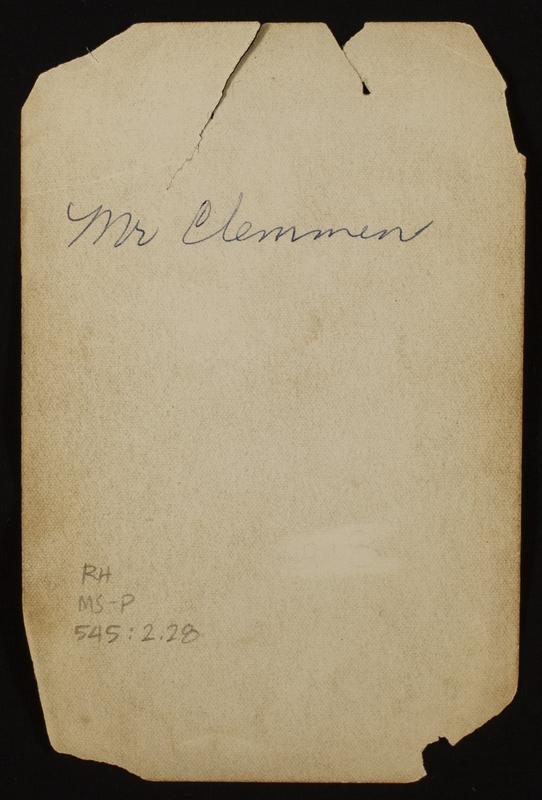 Mr Clemmen
RH
MS-P
545:2.28